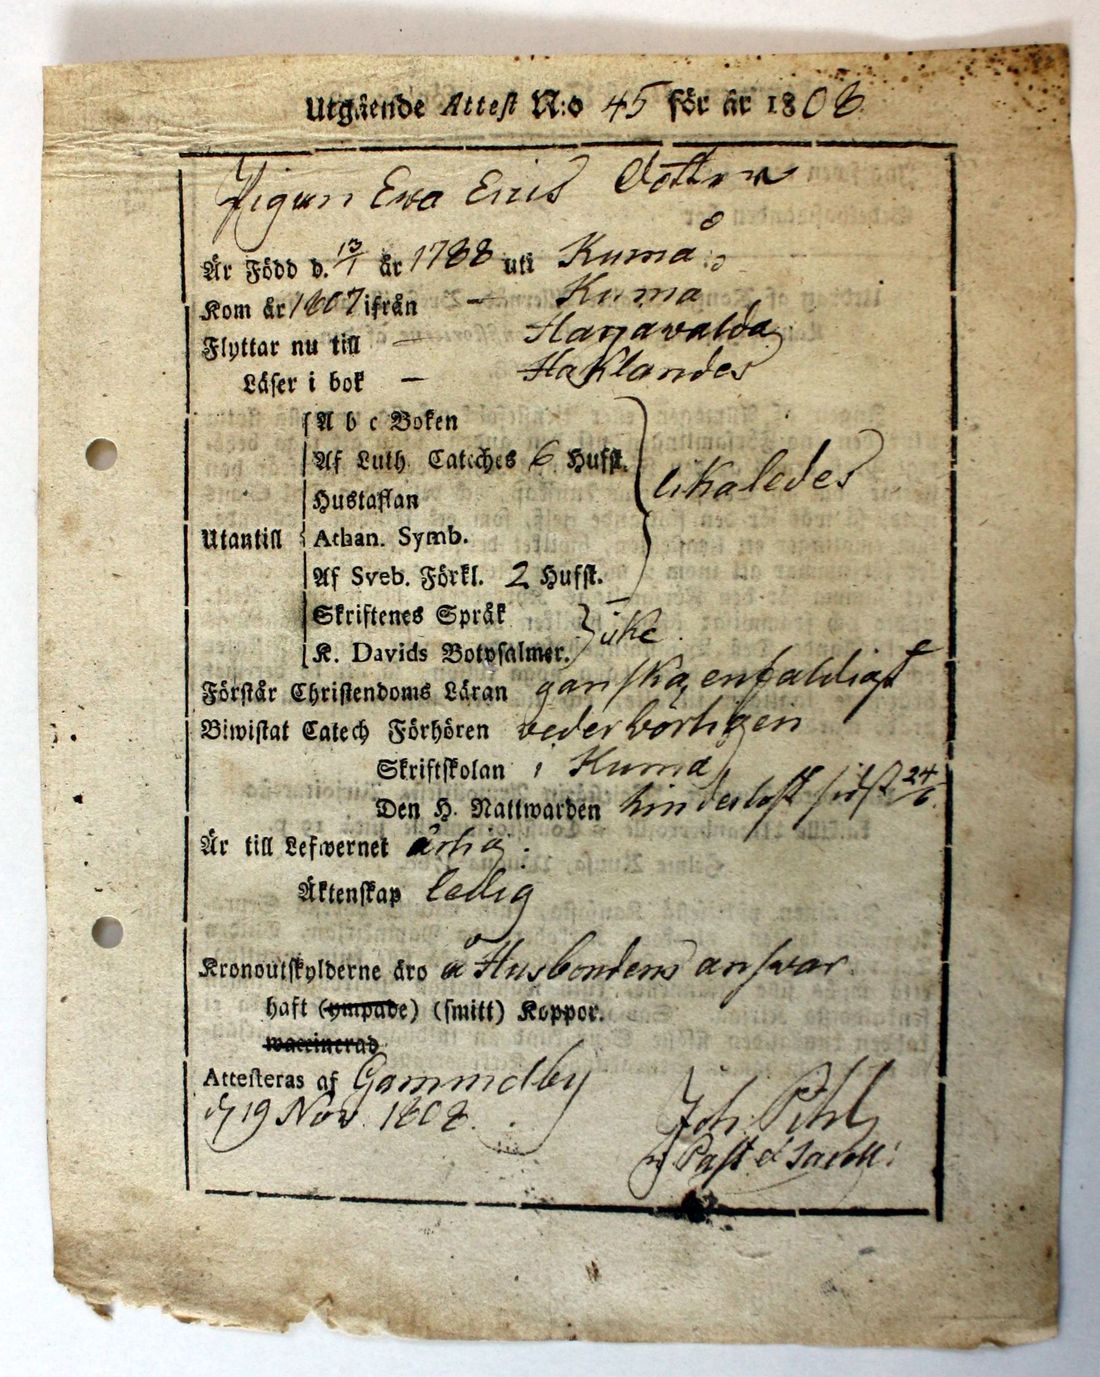 Utgående Attest N:o 45 för år 1808
Pigan Ewa Erics Dotter
Är Född d. 13/1 år 1788 uti Kumla
Kom år 1807 ifrån — Kumla
Flyttar nu till — Hargiawalda
Läser i bok — Haklandes
A b c Boken
Af Luth. Cateches 6 Hufst.
Hustaflan
likaledes
Utantill Athan. Symb.
Af Sveb. Förkl. 2 Hufst.
Skriftenes Språk
icke
K. Davids Botpsalmer.
Förstår Christendoms Läran ganska enfaldigt
Biwistat Catech Förhören vederbörligen
Skriftskolan i Kumla
Den H. Nattwarden hinderlöst sidst 24/6
Är till Lefwernet ärlig.
Äktenskap ledig
Kronoutskylderne äro å Husbondens answar.
haft (ympade) (smitt) Koppor.
waccinerad
Attesteras af Gammelby
d. 19 Nov. 1808.
Joh. Pihl
Past. et